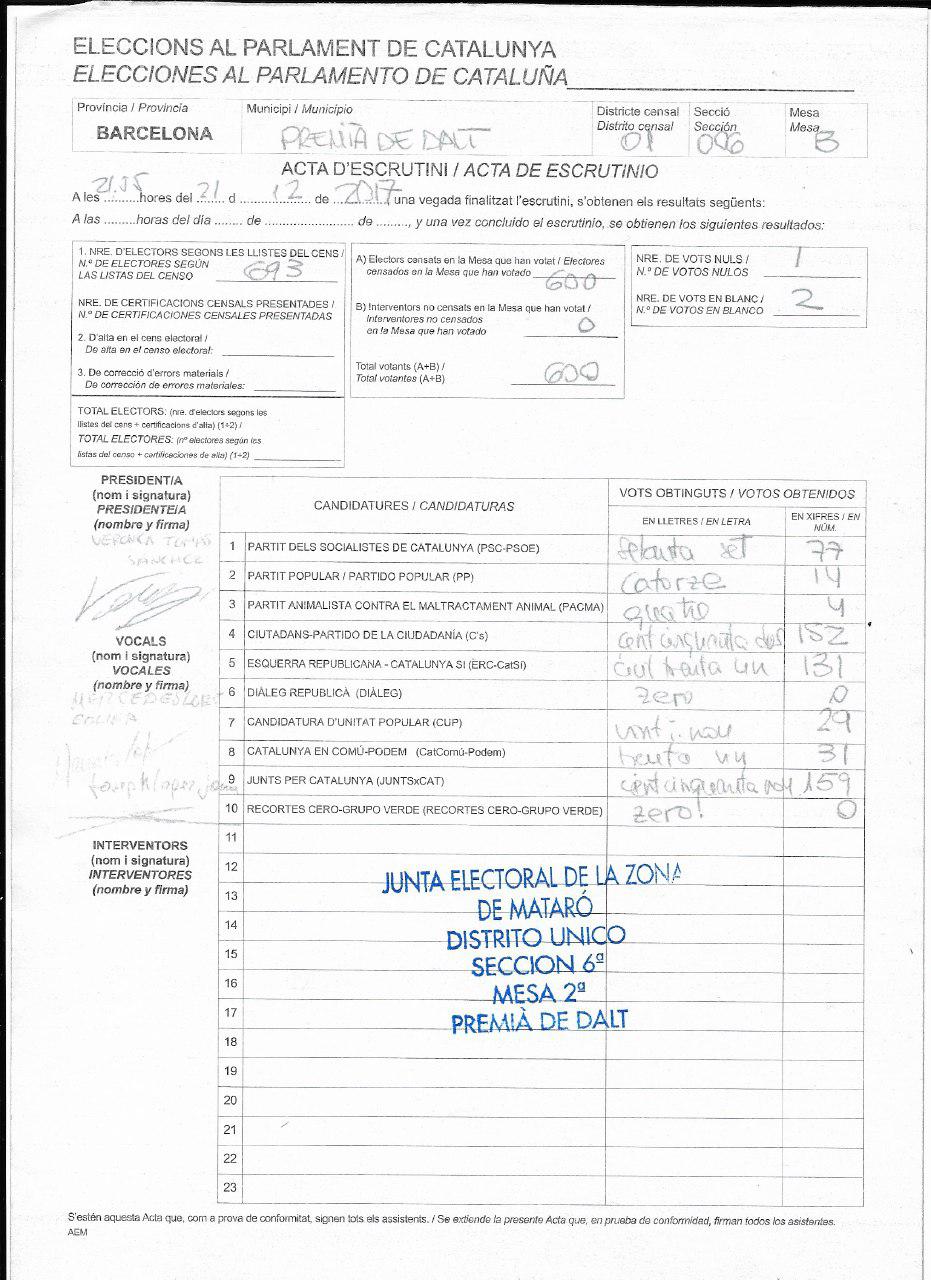 ELECCIONS AL PARLAMENT DE CATALUNYA
ELECCIONES AL PARLAMENTO DE CATALUÑA
Província / Provincia
BARCELONA
Municipi / Municipio
PREMIÀ DE DALT
Districte censal
Distrito censal
01
Secció
Sección
006
Mesa
Mesa
B
ACTA D'ESCRUTINI / ACTA DE ESCRUTINIO
A les 21.55 hores del 21 d 12 de 2017 una vegada finalitzat l'escrutini, s'obtenen els resultats següents:
A las .........horas del día ....... de ........................ de ........., y una vez concluido el escrutinio, se obtienen los siguientes resultados:
1. NRE. D'ELECTORS SEGONS LES LLISTES DEL CENS /
N.º DE ELECTORES SEGÚN
LAS LISTAS DEL CENSO 693
NRE. DE CERTIFICACIONS CENSALS PRESENTADES /
N.º DE CERTIFICACIONES CENSALES PRESENTADAS
2. D'alta en el cens electoral /
De alta en el censo electoral:
3. De correcció d'errors materials /
De corrección de errores materiales:
TOTAL ELECTORS: (nre. d'electors segons les
llistes del cens + certificacions d'alta) (1+2) /
TOTAL ELECTORES: (nº electores según les
listas del censo + certificaciones de alta) (1+2)
A) Electors censats en la Mesa que han votat / Electores
censados en la Mesa que han votado 600
B) Interventors no censats en la Mesa que han votat /
Interventores no censados
en la Mesa que han votado 0
Total votants (A+B) /
Total votantes (A+B) 600
NRE. DE VOTS NULS /
N.º DE VOTOS NULOS 1
NRE. DE VOTS EN BLANC /
N.º DE VOTOS EN BLANCO 2
PRESIDENT/A
(nom i signatura)
PRESIDENTE/A
(nombre y firma)
VERONICA
SANCHEZ
VOCALS
(nom i signatura)
VOCALES
(nombre y firma)
MERCEDES
INTERVENTORS
(nom i signatura)
INTERVENTORES
(nombre y firma)
CANDIDATURES / CANDIDATURAS
VOTS OBTINGUTS / VOTOS OBTENIDOS
EN LLETRES / EN LETRA
EN XIFRES / EN
NÚM.
1 PARTIT DELS SOCIALISTES DE CATALUNYA (PSC-PSOE) setanta set 77
2 PARTIT POPULAR / PARTIDO POPULAR (PP) catorze 14
3 PARTIT ANIMALISTA CONTRA EL MALTRACTAMENT ANIMAL (PACMA) quatre 4
4 CIUTADANS-PARTIDO DE LA CIUDADANÍA (C's) cent cinquanta dos 152
5 ESQUERRA REPUBLICANA - CATALUNYA SI (ERC-CatSí) cent trenta un 131
6 DIÀLEG REPUBLICÀ (DIÀLEG) zero 0
7 CANDIDATURA D'UNITAT POPULAR (CUP) vint i nou 29
8 CATALUNYA EN COMÚ-PODEM (CatComú-Podem) trenta un 31
9 JUNTS PER CATALUNYA (JUNTSxCAT) cent cinquanta nou 159
10 RECORTES CERO-GRUPO VERDE (RECORTES CERO-GRUPO VERDE) zero! 0
11
12
13
14
15
16
17
18
19
20
21
22
23
JUNTA ELECTORAL DE LA ZONA
DE MATARÓ
DISTRITO UNICO
SECCION 6ª
MESA 2ª
PREMIÀ DE DALT
S'estén aquesta Acta que, com a prova de conformitat, signen tots els assistents. / Se extiende la presente Acta que, en prueba de conformidad, firman todos los asistentes.
AEM